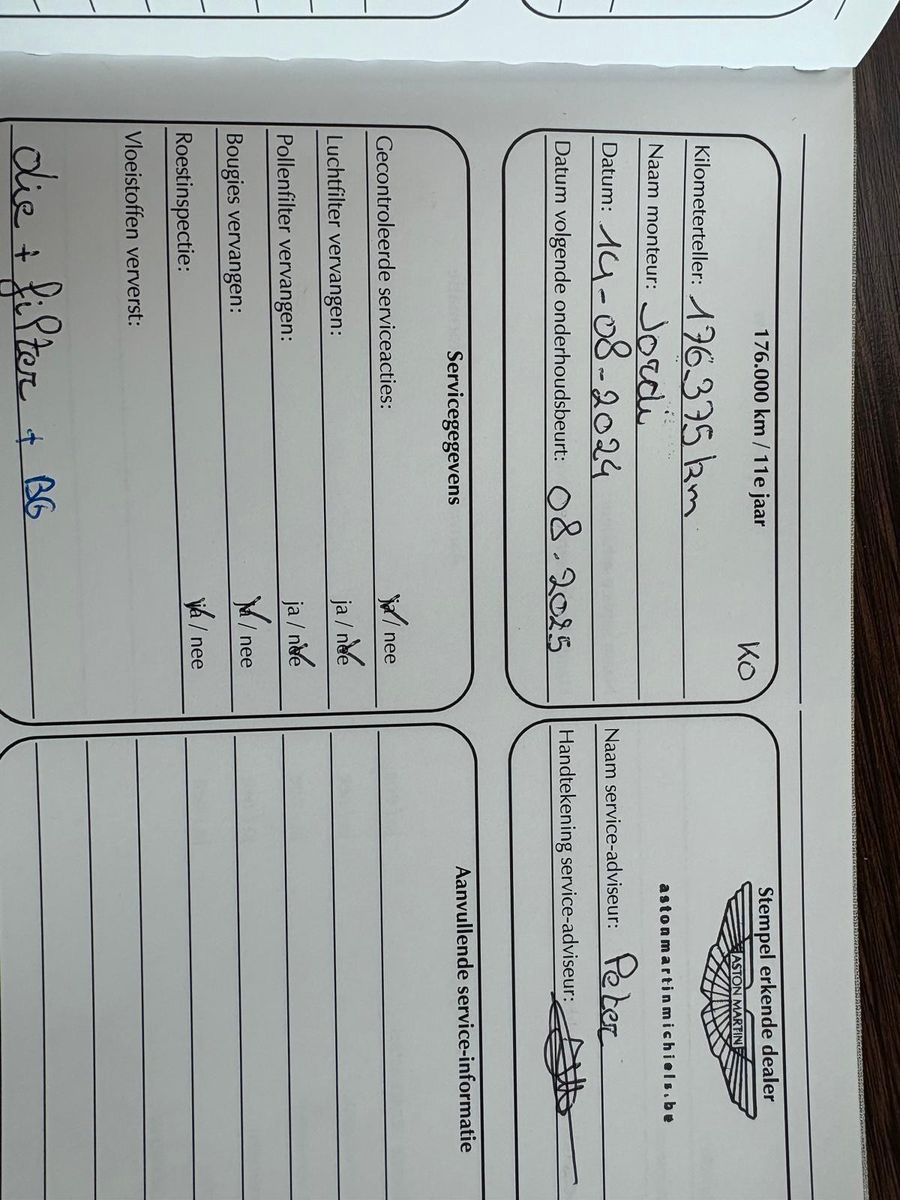 176.000 km / 11e jaar
KO
Kilometerteller: 176.375 km
Naam monteur: Jordi
Datum: 14-08-2024
Datum volgende onderhoudsbeurt: 08.2025
Stempel erkende dealer
ASTON MARTIN
astonmartinmichiels.be
Naam service-adviseur: Peter
Handtekening service-adviseur:
Servicegegevens
Gecontroleerde serviceacties: ja / nee
Luchtfilter vervangen: ja / nee
Pollenfilter vervangen: ja / nee
Bougies vervangen: ja / nee
Roestinspectie: ja / nee
Vloeistoffen ververst:
olie + filter + BG
Aanvullende service-informatie